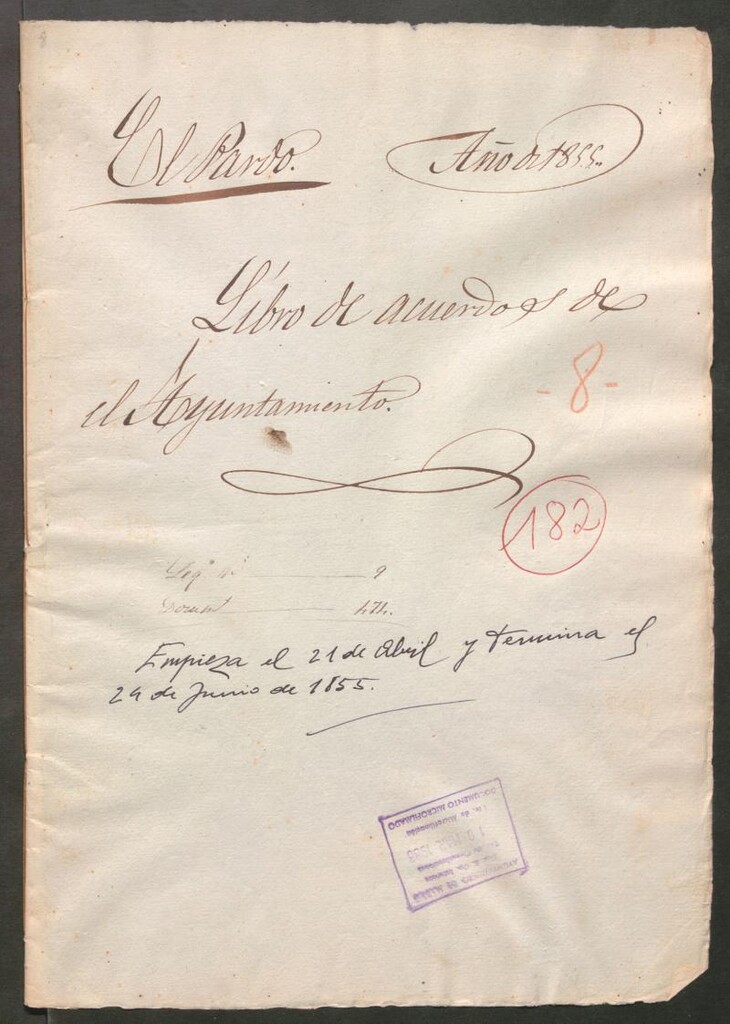 8
El Pardo. Año de 1855.
Libro de acuerdos de
el Ayuntamiento.
- 8 -
182
Leg.º n.º 9
Docum.to
Empieza el 21 de Abril y termina el
24 de Junio de 1855.
AYUNTAMIENTO DE MADRID
DOCUMENTO MICROFILMADO